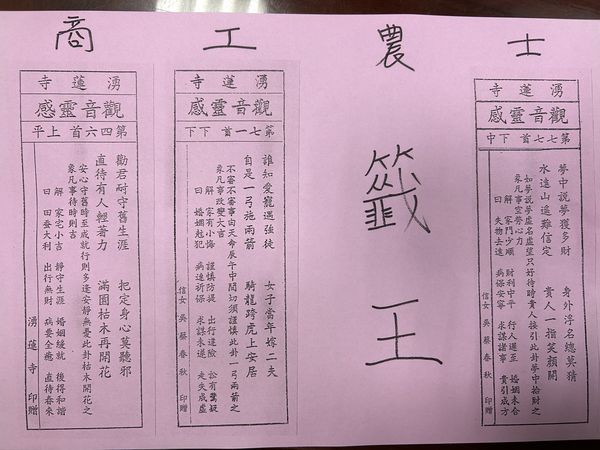 士 農 工 商
籤王
湧蓮寺
觀音靈感
第七七首 下中
夢中說夢獲多財 身外浮名總莫猜
水遠山遙難信定 貴人一指笑顏開
如夢說夢虛名虛望只好待時貴人接引此卦夢中拾財之
象凡事空勞心力
解 家門少順 財利中平 行人遲至 婚姻未合
曰 失物去遠 病保安寧 求謀諸事 貴引成方
信女 吳蔡春秋 印贈
湧蓮寺
觀音靈感
第七一首 下下
誰知愛寵遇強徒 女子當年嫁二夫
自是一弓施兩箭 騎龍跨虎上安居
不審不事由天命辰午中間切須謹慎此卦一弓兩箭之
象凡事改變大吉
解 家有小悔 謹慎防提 出行連險 訟有驚疑
曰 婚姻剋犯 病速祈保 求謀未遂 走失成虛
信女 吳蔡春秋 印贈
湧蓮寺
觀音靈感
第四六首 上平
勸君耐守舊生涯 把定身心莫聽邪
直待有人輕著力 滿園枯木再開花
安心守舊時至成就行則多逢安靜無憂此卦枯木開花之
象凡事待時則吉
解 家宅小吉 靜守生涯 婚姻緩就 後得和諧
曰 田蠶大利 出行無財 病要全癒 直待春來
湧蓮寺 印贈